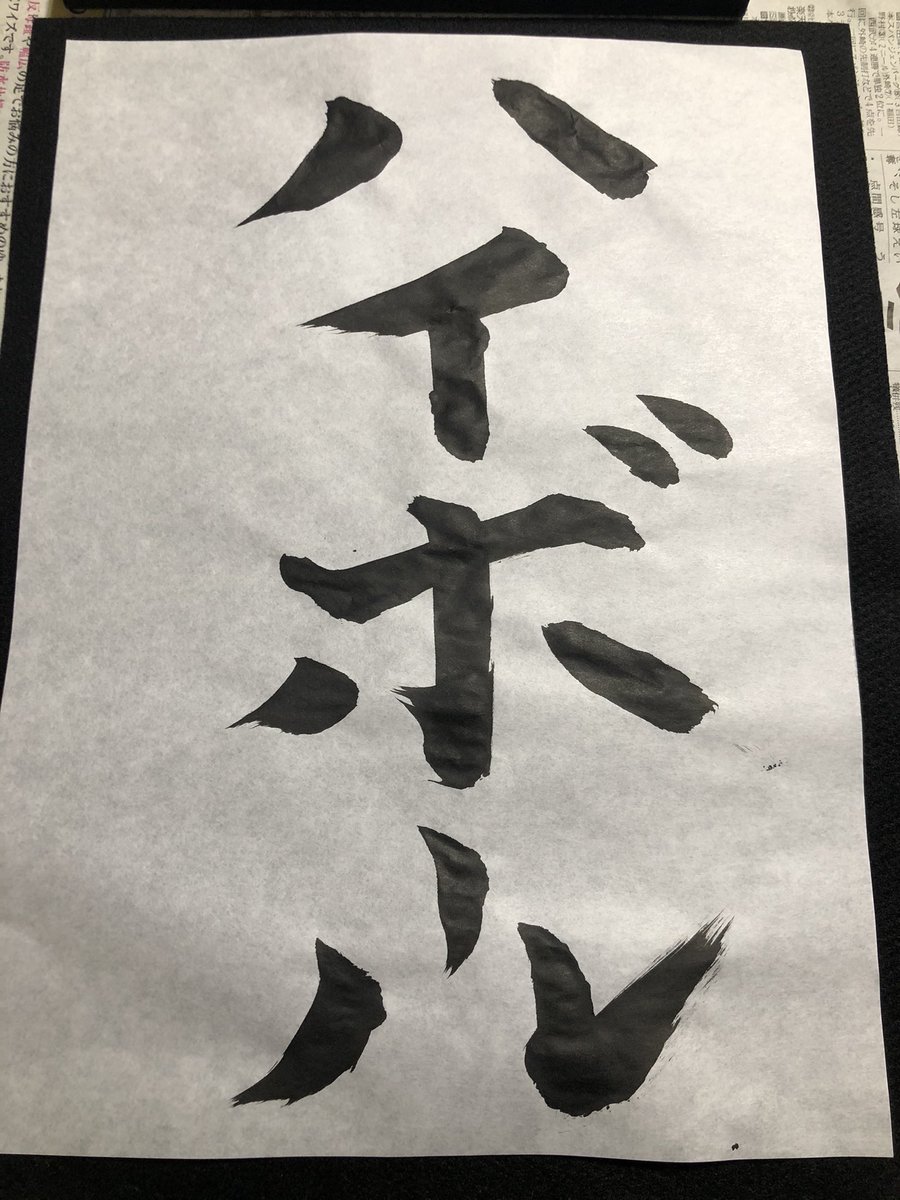 ハイボール